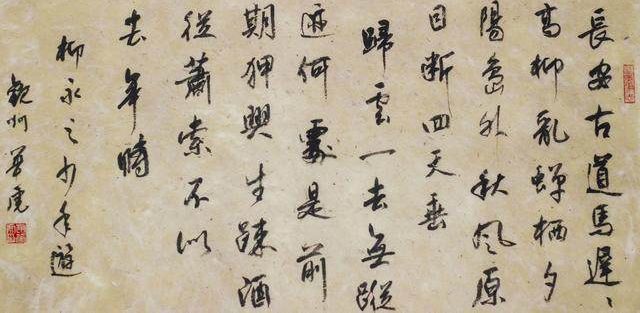 長安古道馬遲〻
高柳亂蟬栖夕
陽島外秋風原
目斷四天垂
歸雲一去無蹤
迹何處是前
期狎興生疎酒
從蕭索不似
去年時
柳永之少年遊
觀州